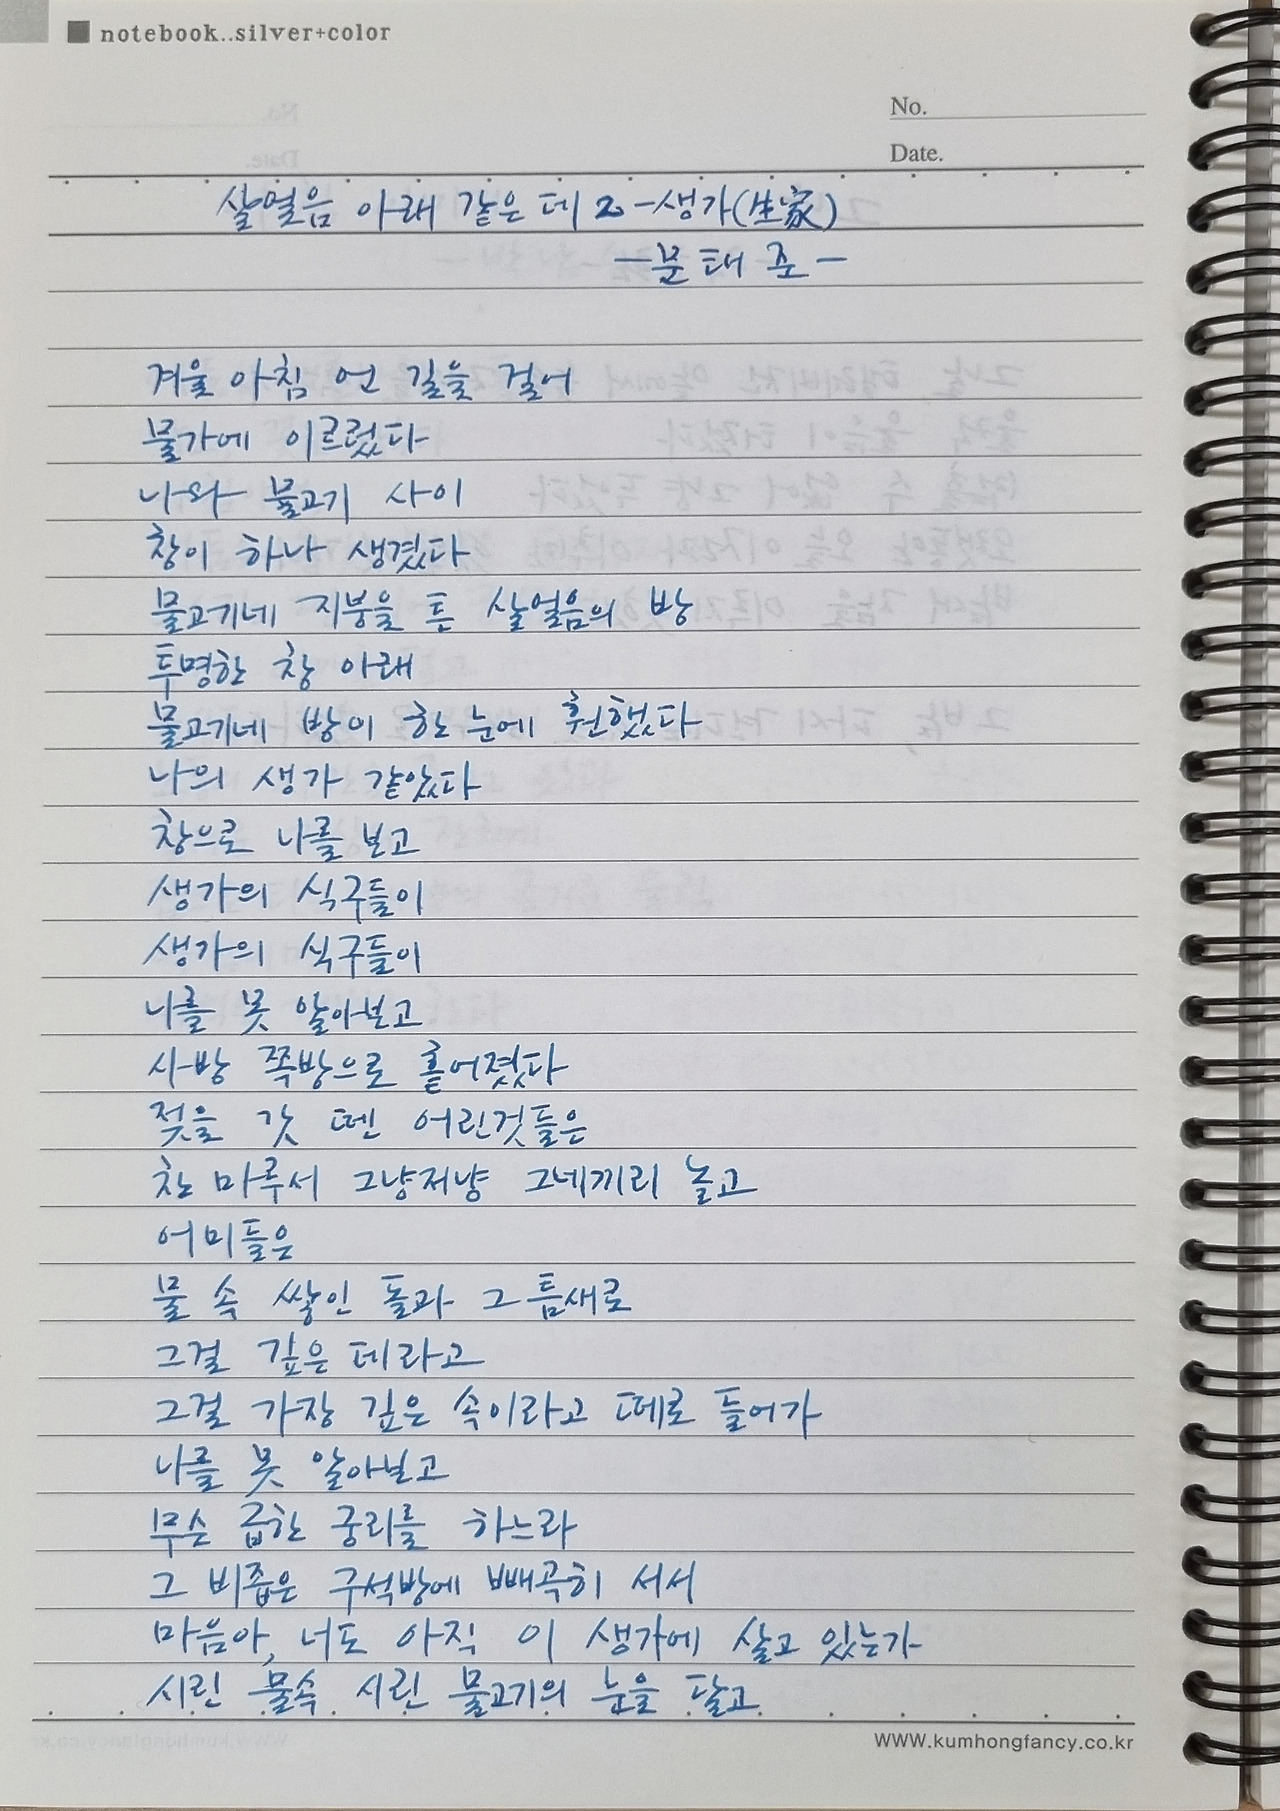 notebook..silver+color
No.
Date.
살얼음 아래 같은 데 2 -생가(生家)
-문태준-
겨울 아침 언 길을 걸어
물가에 이르렀다
나와 물고기 사이
창이 하나 생겼다
물고기네 지붕을 튼 살얼음의 방
투명한 창 아래
물고기네 방이 한눈에 훤했다
나의 생가 같았다
창으로 나를 보고
생가의 식구들이
생가의 식구들이
나를 못 알아보고
사방 쪽방으로 흩어졌다
젖을 갓 뗀 어린것들은
찬 마루서 그냥저냥 그네끼리 놀고
어미들은
물 속 쌓인 돌과 그 틈새로
그걸 깊은 데라고
그걸 가장 깊은 속이라고 떼로 들어가
나를 못 알아보고
무슨 급한 궁리를 하느라
그 비좁은 구석방에 빼곡히 서서
마음아, 너도 아직 이 생가에 살고 있는가
시린 물속 시린 물고기의 눈을 달고
WWW.kumhongfancy.co.kr